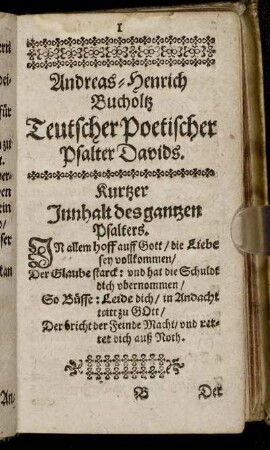 1
Andreas-Henrich
Bucholtz
Teutscher Poetischer
Psalter Davids.
Kurtzer
Jnnhalt des gantzen
Psalters.
JN allem hoff auff Gott/ die Liebe
sey vollkommen/
Der Glaube starck: vnd hat die Schuldt
dich vbernommen/
So Büsse: Leide dich/ in Andacht
tritt zu GOtt/
Der bricht der Feinde Macht/ vnd ret-
tet dich auß Noth.
B Der